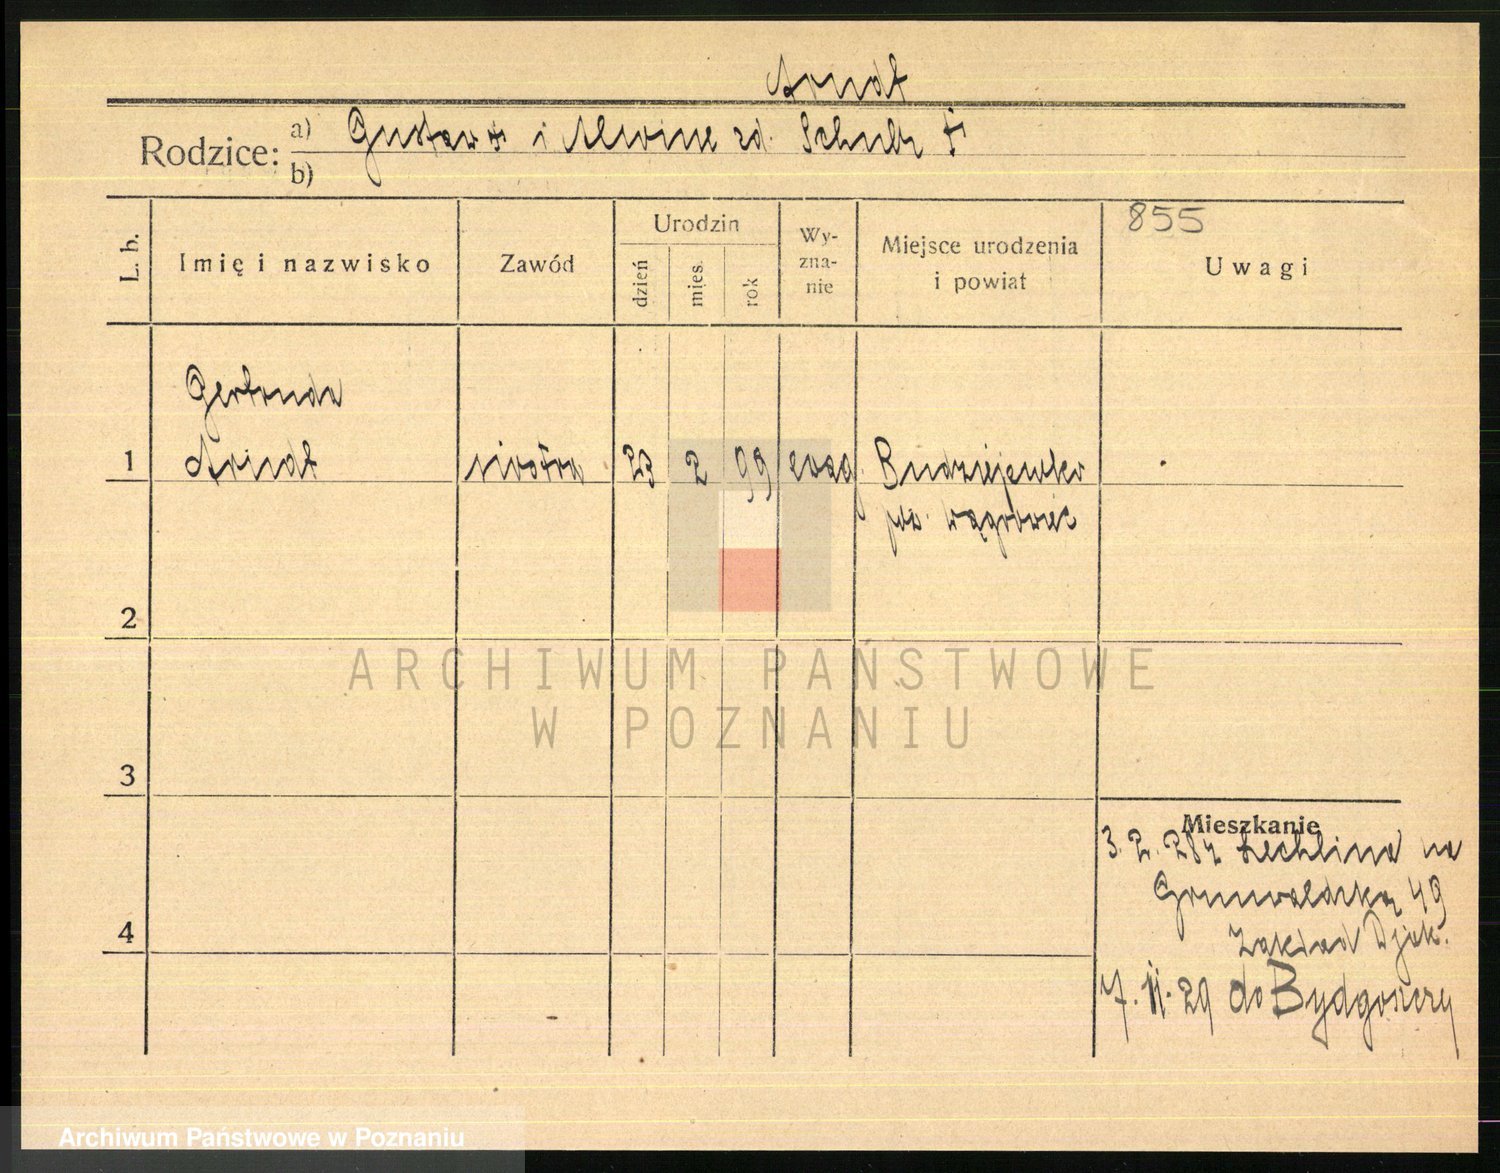 Arndt
Rodzice: a) Gustaw + i Alwine zd. Schulz +
b)
L. b.
Imię i nazwisko
Zawód
Urodzin
dzień
mies.
rok
Wy-
zna-
nie
Miejsce urodzenia
i powiat
855
Uwagi
Gertruda
1 Arndt siostra 23 2 99 ewag. Budziejewko
pw. Wągrowiec
2
3
4
Mieszkanie
3. 2. 28 z Łechlina na
Grunwaldzką 49
Zakład Djak.
7. II. 29 do Bydgoszczy
ARCHIWUM PAŃSTWOWE
W POZNANIU
Archiwum Państwowe w Poznaniu